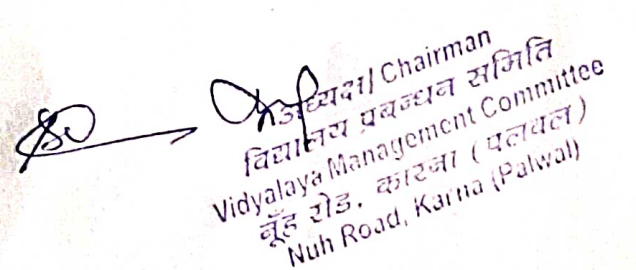 अध्यक्ष/ Chairman
विद्यालय प्रबन्धन समिति
Vidyalaya Management Committee
नूँह रोड, कारना (पलवल)
Nuh Road, Karna (Palwal)